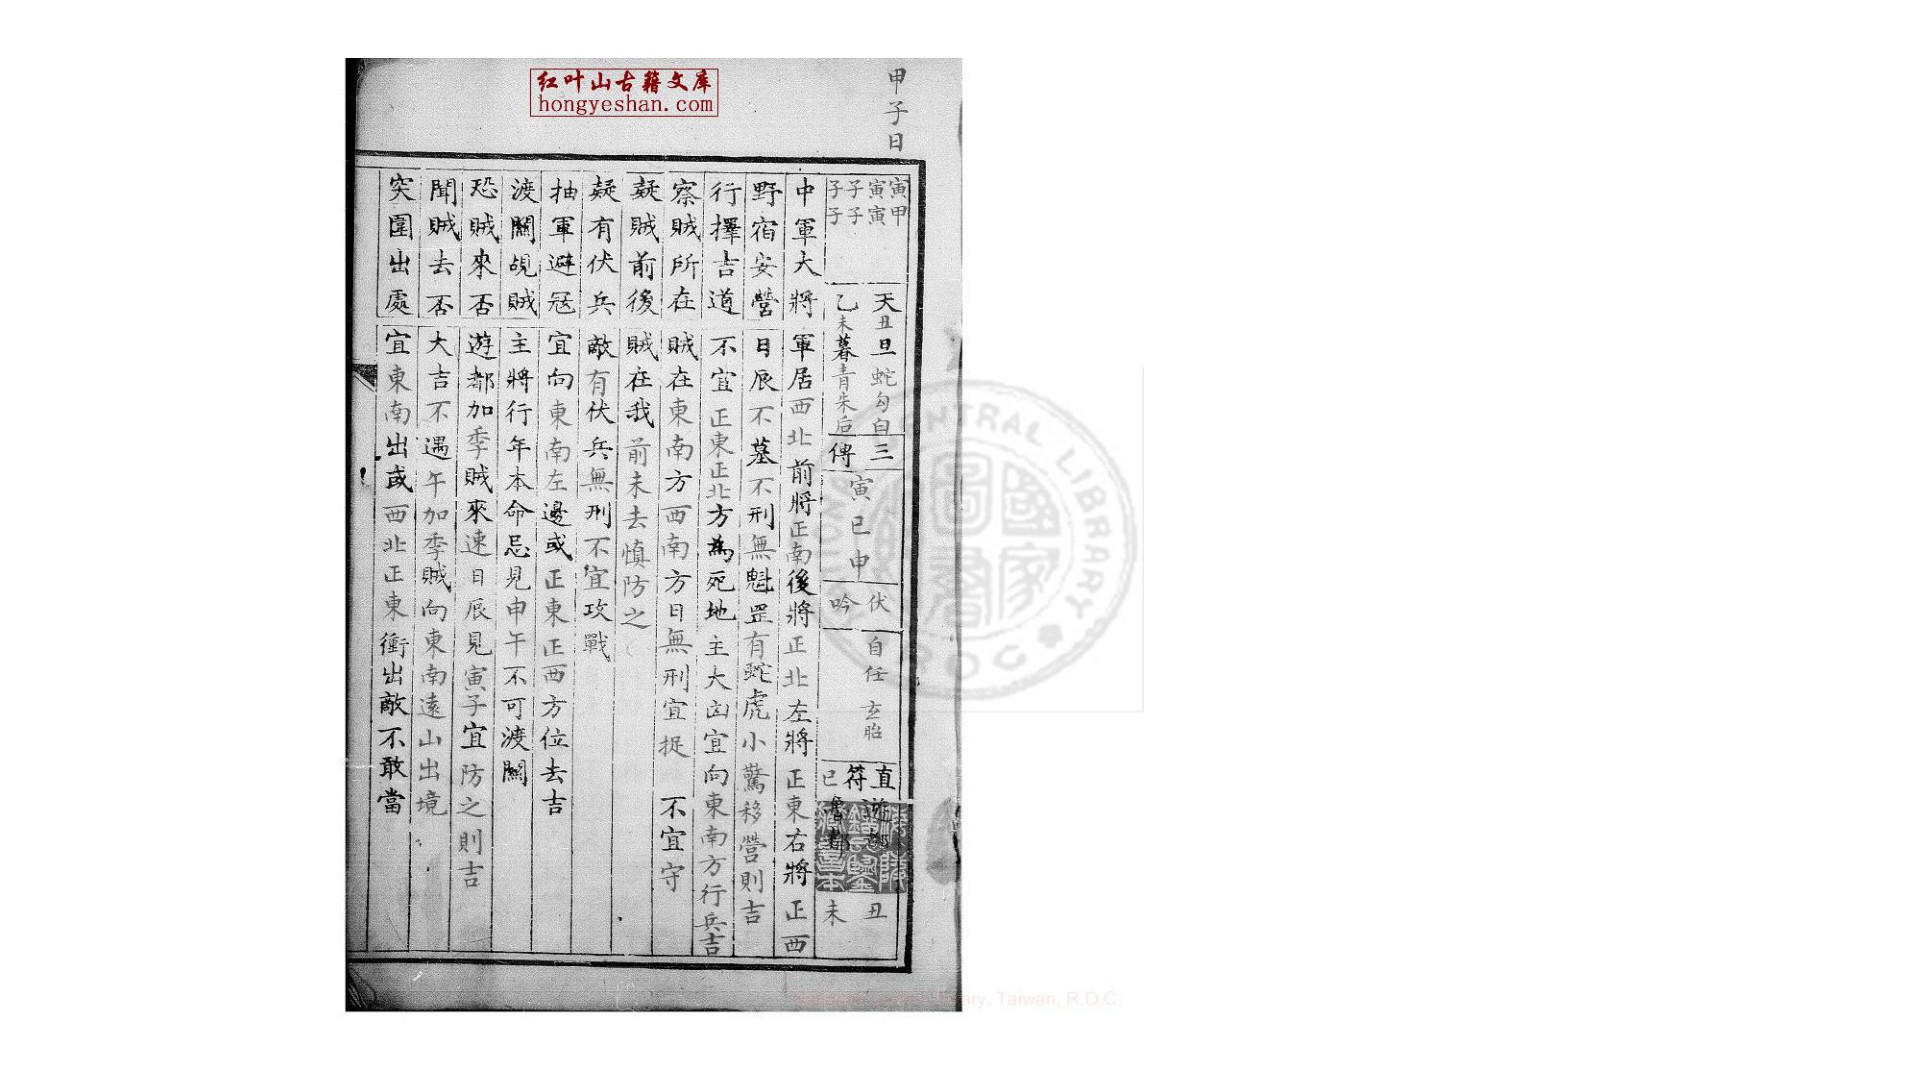 红叶山古籍文库
hongyeshan.com
甲子日
寅甲
寅寅
子子
子子
天乙
丑旦蛇勾白
未暮青朱后
三傳
寅巳申
伏吟
自任
玄胎
直符
巳
遊都
丑
魯都
未
中軍大將 軍居西北前將正南後將正北左將正東右將正西
野宿安營 日辰不墓不刑無魁罡有蛇虎小驚移營則吉
行擇吉道 不宜正東正北方為死地主大凶宜向東南方行兵吉
察賊所在 賊在東南方西南方日無刑宜捉 不宜守
疑賊前後 賊在我前未去慎防之
疑有伏兵 敵有伏兵無刑不宜攻戰
抽軍避冦 宜向東南左邊或正東正西方位去吉
渡關覘賊 主將行年本命忌見申午不可渡關
恐賊來否 遊都加季賊來速日辰見寅子宜防之則吉
聞賊去否 大吉不遇午加季賊向東南遠山出境
突圍出處 宜東南出或西北正東衝出敵不敢當
CENTRAL LIBRARY
R.O.C
國家圖書
Library, Taiwan, R.O.C.